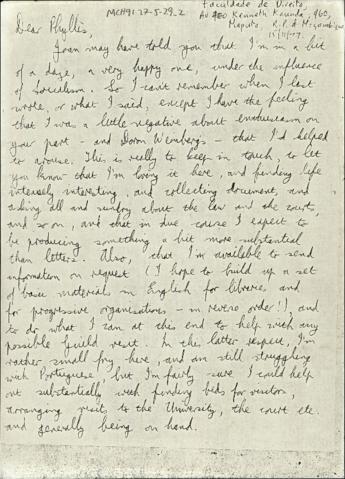 MCH91-27-5-29-2
Faculdade de Direito,
Av Kenneth Kaunda, 960,
Maputo, R.P. d Moçambique
15/11/77.
Dear Phyllis,
Joan may have told you that I'm in a bit
of a daze, a very happy one, under the influence
of Socialism. So I can't remember when I last
wrote, or what I said, except I have the feeling
that I was a little negative about enthusiasm on
your part - and Doron Weinbergs - that I'd helped
to arouse. This is really to keep in touch, to let
you know that I'm loving it here, and finding life
intensely interesting, and collecting document, and
asking all and sundry about the law and the courts,
and so on, and that in due course I expect to
be producing something a bit more substantial
than letters. Also, that I'm available to send
information on request (I hope to build up a set
of basic materials in English for libraries and
for progressive organisations - in reverse order!), and
to do what I can at this end to help with any
possible Guild visit. In this latter respect, I'm
rather small fry here, and am still struggling
with Portuguese, but I'm fairly sure I could help
out substantially with finding beds for visitors,
arranging visits to the University, the court etc.
and generally being on hand.